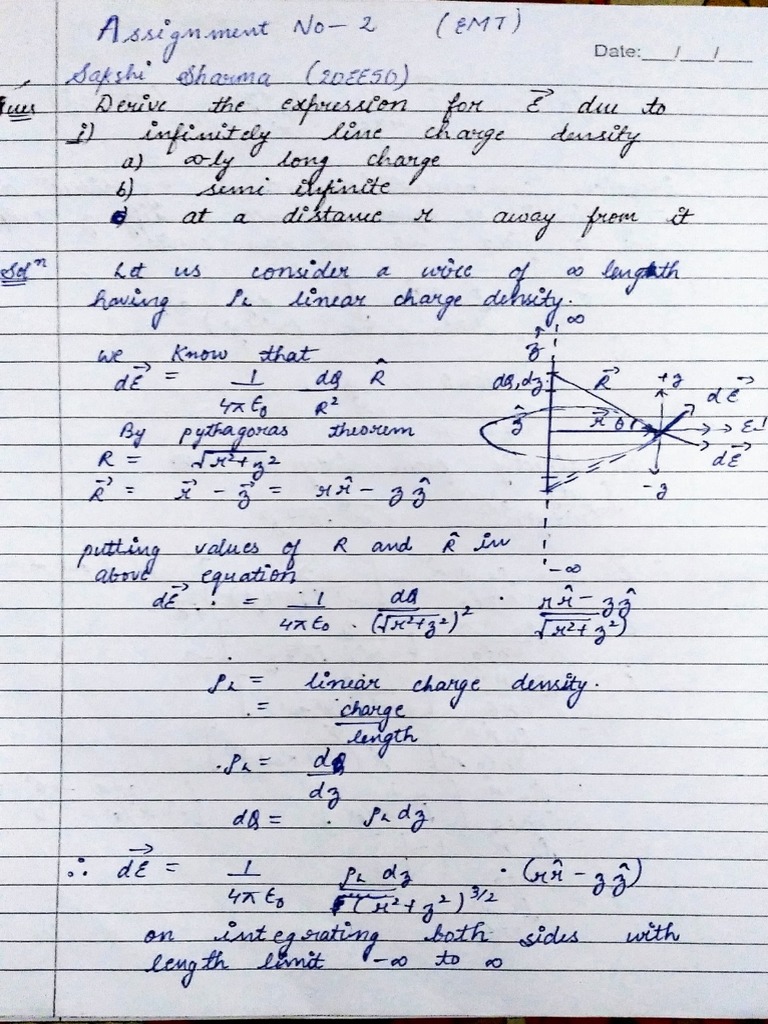 Assignment No- 2 (EMT)
Date:__/__/__
Sakshi Sharma (20EE50)
Ques Derive the expression for E⃗ due to
i) infinitely line charge density
a) ∞ly long charge
b) semi infinite
at a distance r away from it
Solⁿ Let us consider a wire of ∞ length
having ρL linear charge density.
∞
ẑ
we know that
dE⃗ = 1/4πε₀ dQ/R² R̂
dQ, dz R⃗ +z dE⃗
By pythagoras theorem
ẑ r⃗ θ
R = √r²+z²
dE⃗
R⃗ = r⃗ - z⃗ = r r̂ - z ẑ
-z
putting values of R and R̂ in
above equation
-∞
dE⃗ = 1/4πε₀ . dQ/(√r²+z²)² . r r̂ - z ẑ/√r²+z²)
ρL = linear charge density.
= charge
length
ρL = dQ/dz
dQ = ρL dz
∴ dE⃗ = 1/4πε₀ ρL dz/(r²+z²)^3/2 . (r r̂ - z ẑ)
on integrating both sides with
length limit -∞ to ∞